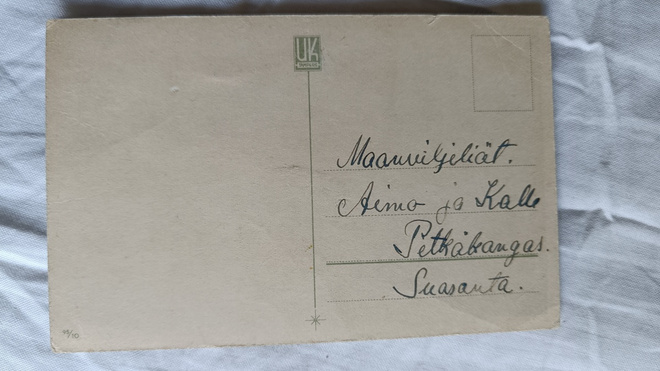 UK
Maanviljeliät.
Aimo ja Kalle
Petkäkangas.
Suasanta.